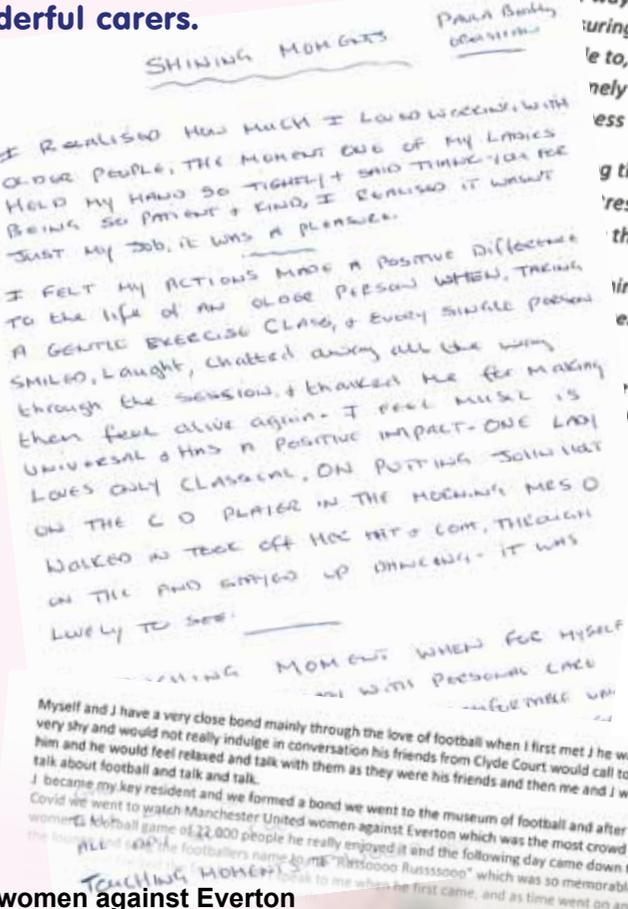 derful carers.
SHINING MOMENTS
PAULA
I REALISED HOW MUCH I LOVED WORKING WITH
OLDER PEOPLE, THE MOMENT ONE OF MY LADIES
HELD MY HAND SO TIGHTLY + SAID THANK YOU FOR
BEING SO PATIENT + KIND, I REALISED IT WASN'T
JUST MY JOB, IT WAS A PLEASURE.
I FELT MY ACTIONS MADE A POSITIVE DIFFERENCE
TO the life of AN OLDER PERSON WHEN, TAKING
A GENTLE EXERCISE CLASS, + EVERY SINGLE PERSON
SMILED, Laught, chatted away all the way
through the session, + thanked me for making
them feel alive again. I FEEL MUSIC IS
UNIVERSAL & HAS A POSITIVE IMPACT - ONE LADY
LOVES ONLY CLASSICAL, ON PUTTING JOHN HOLT
ON THE CD PLAYER IN THE MORNING MRS O
WALKED IN TOOK OFF HER HAT + COAT, THROUGH
ON THE AND STAYED UP DANCING - IT WAS
LOVELY TO SEE.
MOMENT WHEN FOR MYSELF
WITH PERSONAL CARE
uring
e to,
nely
ess
g th
res
th
Myself and J have a very close bond mainly through the love of football when I first met J he w
very shy and would not really indulge in conversation his friends from Clyde Court would call to
him and he would feel relaxed and talk with them as they were his friends and then me and J w
talk about football and talk and talk.
J became my key resident and we formed a bond we went to the museum of football and after
Covid we went to watch Manchester United women against Everton which was the most crowd
womens football game of 22,000 people he really enjoyed it and the following day came down
the footballers name to me "Russoooo Russssooo" which was so memorabl
speak to me when he first came, and as time went on an
ALL OF
TOUCHING MOMENTS
women against Everton